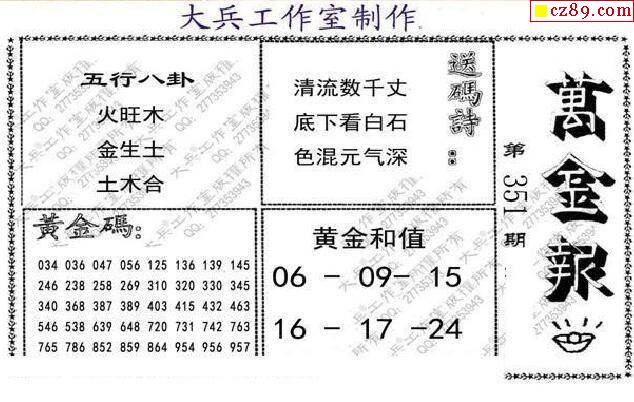 大兵工作室制作
cz89.com
五行八卦
火旺木
金生土
土木合
清流数千丈
底下看白石
色混元气深
送碼詩：
萬金報
第351期
黃金碼：
034 036 047 056 125 136 139 145
246 238 258 269 310 320 330 345
340 368 387 389 403 415 432 463
546 538 639 648 720 731 742 763
765 786 852 859 864 954 956 957
黄金和值
06 - 09- 15
16 - 17 -24
大兵工作室版权所有
QQ：277353943